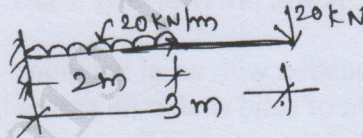 20KN/m
20KN
2m
3m